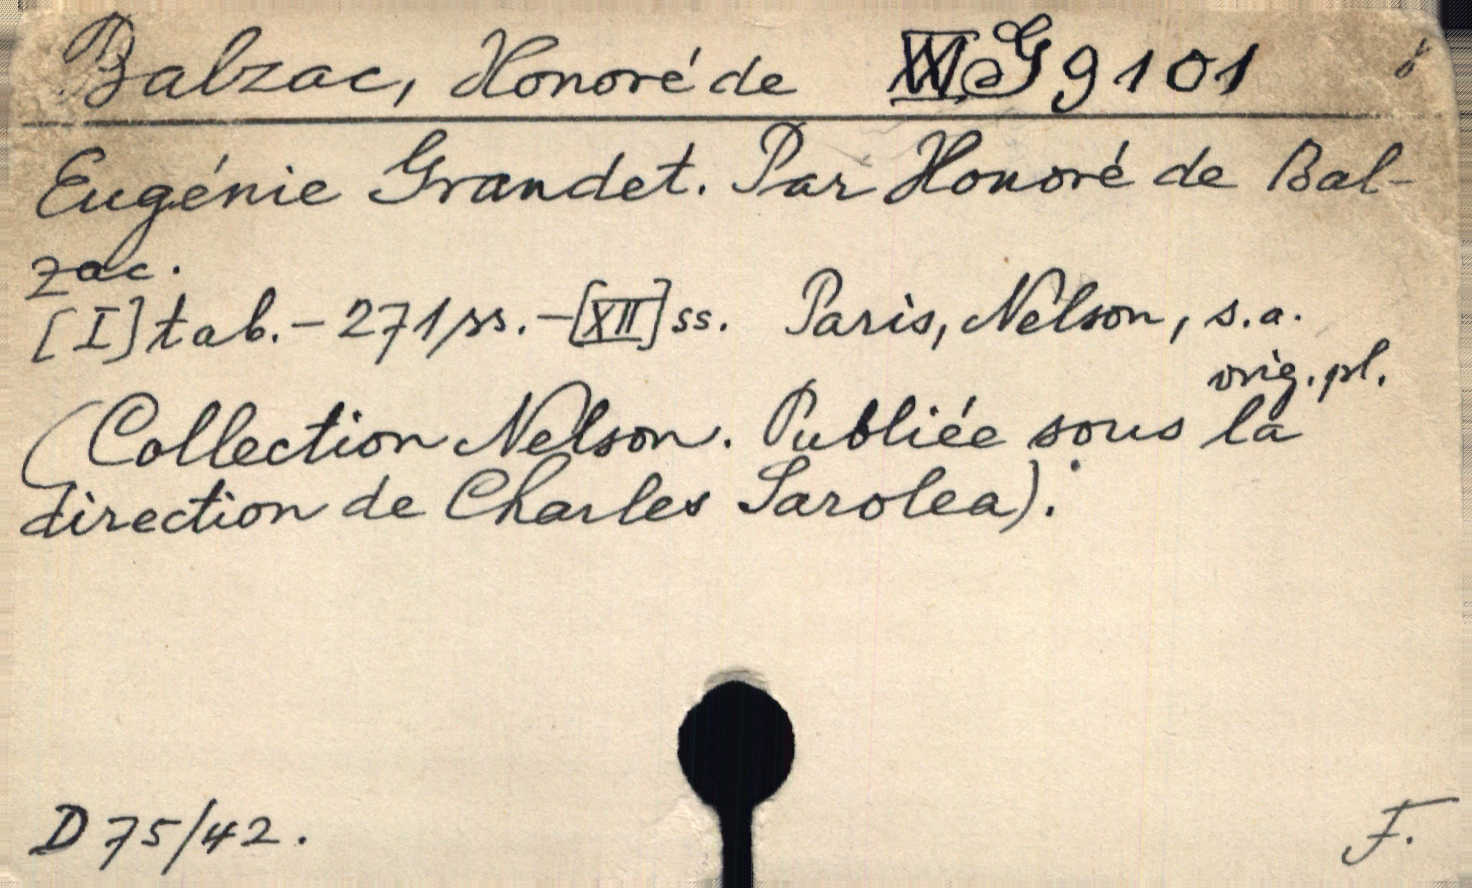 Balzac, Honoré de XVI. G 9101
Eugénie Grandet. Par Honoré de Bal-
zac.
[I] tab. - 271 ss. - [XII] ss. Paris, Nelson, s.a.
orig. pl.
(Collection Nelson. Publiée sous la
direction de Charles Sarolea).
D 75/42.
F.